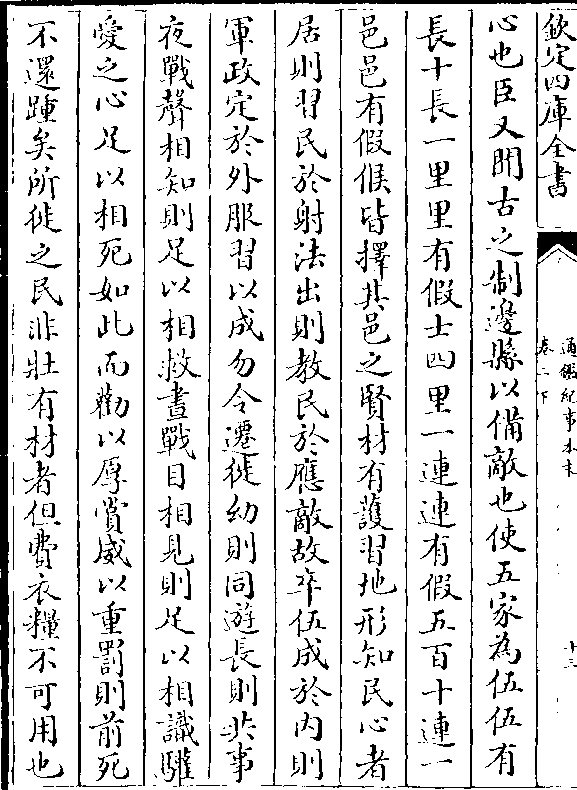 欽定四庫全書
通鑑紀事本末
卷二下
十三
心也臣又聞古之制邊縣以備敵也使五家為伍伍有
長十長一里里有假士四里一連連有假五百十連一
邑邑有假候皆擇其邑之賢材有護習地形知民心者
居則習民於射法出則教民於應敵故卒伍成於内則
軍政定於外服習以成勿令遷徙幼則同遊長則共事
夜戰聲相知則足以相救晝戰目相見則足以相識驩
愛之心足以相死如此而勸以厚賞威以重罰則前死
不還踵矣所徙之民非壯有材者但費衣糧不可用也